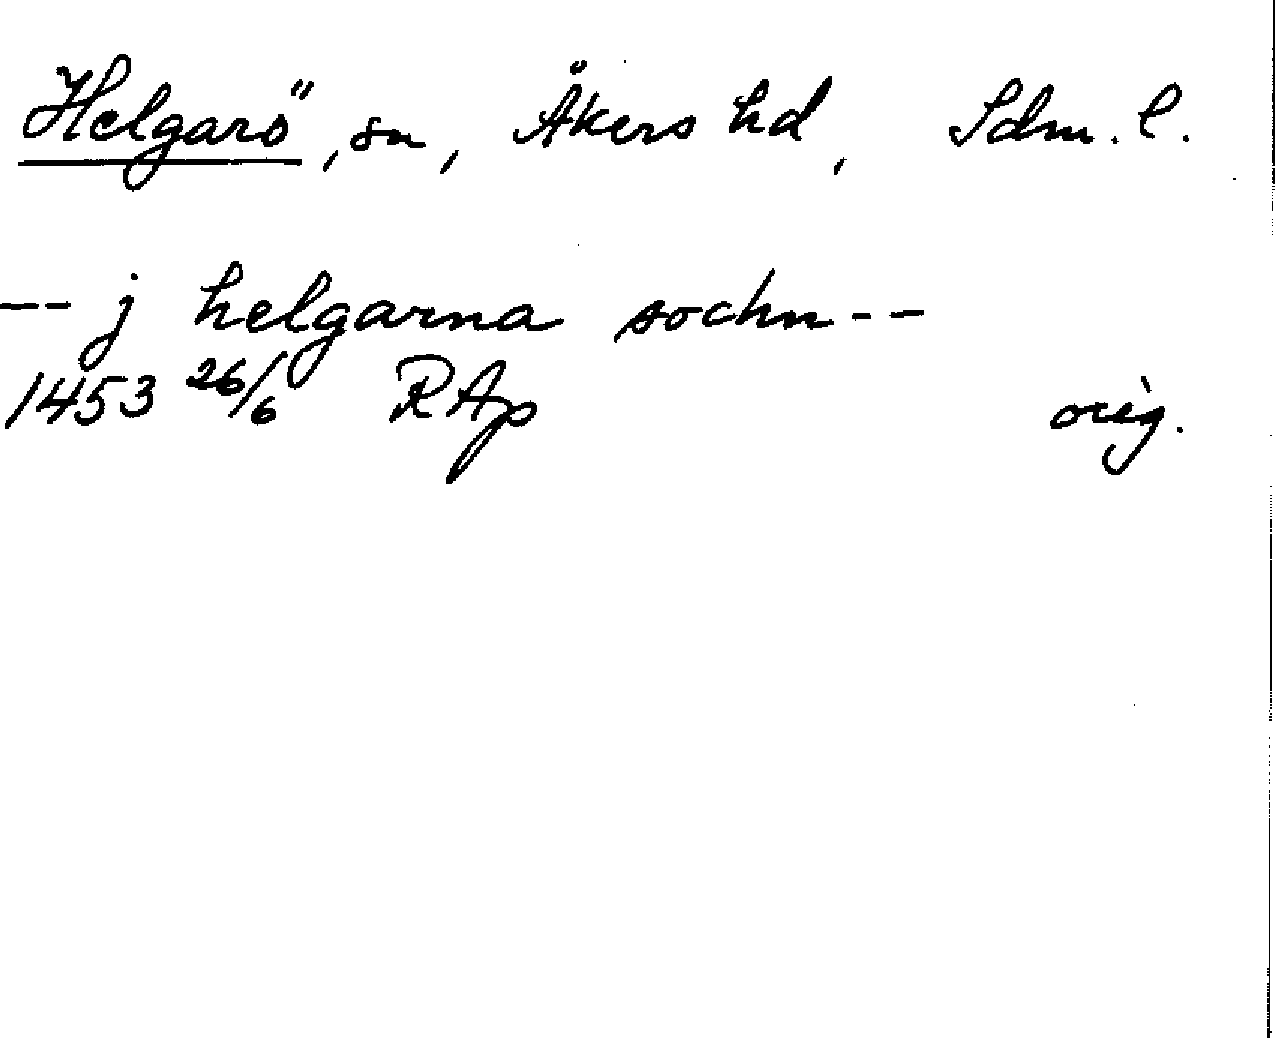 Helgarö, sn, Åkers hd, Sdm. l.
-- j helgarna sochn --
1453 26/6 RAp orig.